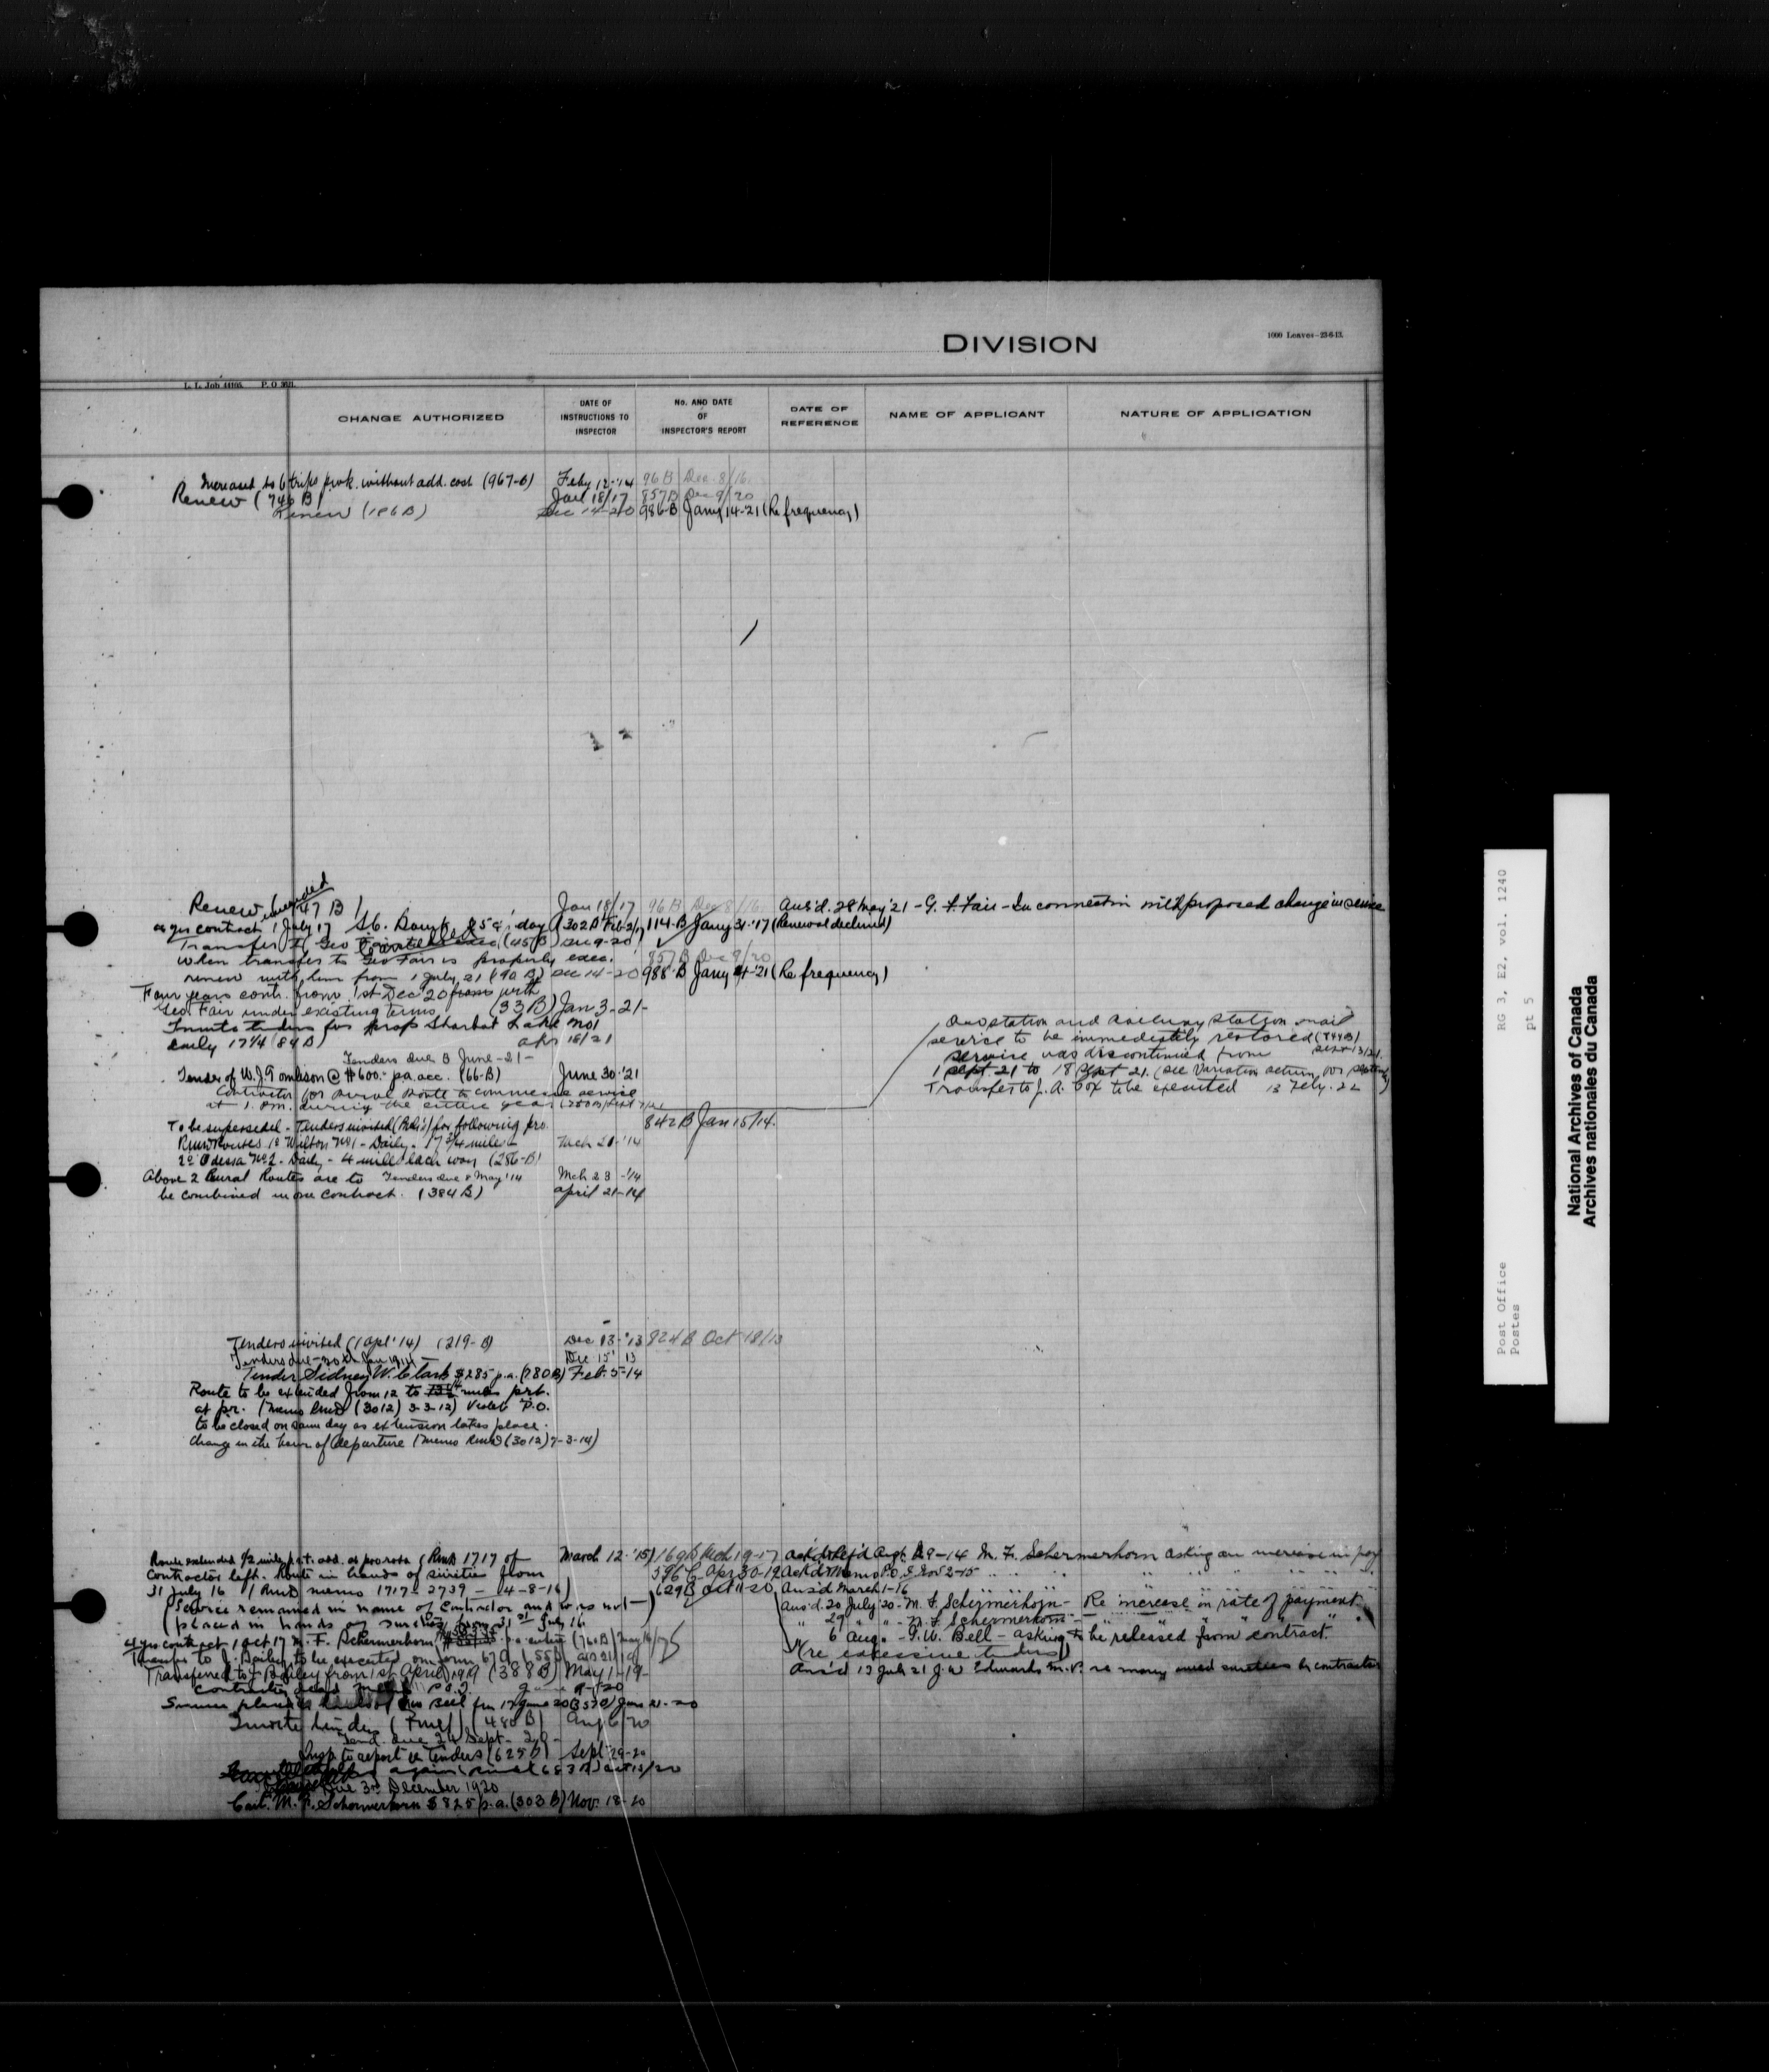 DIVISION
1000 Leaves-23-6-13.
L. L. Job 44105. P. O 3621.
CHANGE AUTHORIZED
DATE OF INSTRUCTIONS TO INSPECTOR
No. AND DATE OF INSPECTOR'S REPORT
DATE OF REFERENCE
NAME OF APPLICANT
NATURE OF APPLICATION
Increased to 6 trips p.wk. without add. cost (967-B) Feby 12-'14 96 B Dec 8/16
Renew (746 B) Jan 18/17 857B Dec 9/20
Renew (186B) Dec 14-20 986-B Jany 14-21 (Re frequency)
Renew 47 B Jan 18/17 96 B Dec 8/16 Ans'd. 28 May '21 - G. F. Fair - In connection with proposed change in service
as per contract 1 July 17 day (302 B Feb 114-B Jany 31-'17 (Renewal declined)
Transfer to Geo (45 B) Dec 9-20
When transfer to Geo Fair is properly exec. 857 B Dec 9/20
renew with him from 1 July 21 (90 B) Dec 14-20 988-B Jany 4-'21 (Re frequency)
Four years contr. from 1st Dec 20 with
Geo. Fair under existing terms (33 B) Jan 3-21-
Invite tenders for prop Sharbot Lake No1
daily 17 1/4 (84 B) apr 18/21
Tenders due 3 June-21-
Tender of W. J. Tomlison @ $600.- p.a. acc. (66-B) June 30-'21
Contractor for Rural Route to commence service
at 1. P.M. during the entire year
station and Railway Station mail
service to be immediately restored (744B)
service was discontinued from Sept 13/21.
1 Sept. 21 to 18 Sept 21. (see Variation
Transfer to J. A. Cox to be executed 13 Feby. 22
To be superseded - Tenders invited for following pro. 842 B Jan 15/14.
Rural Routes 1º Wilton No 1 - Daily - 17 3/4 miles Mch 20-'14
2º Odessa No 2 - Daily - 4 miles each way (286-B)
Above 2 Rural Routes are to Tenders due 8 May '14 Mch 28-'14
be combined in one contract. (384 B) April 21-14
Tenders invited (1 Apl '14) (219-B) Dec 13-'13 824 B Oct 18/13
Tenders due - 30th Jan 1914 - Dec 15 '13
Tender Sidney W. Clark $285 p.a. (780B) Feb. 5-14
Route to be extended from 12 to miles p.rt.
at pr. (Memo Rmd (3012) 3-3-12) Violet P.O.
to be closed on same day as extension takes place.
Change in the hour of departure (Memo Rmd (3012) 7-3-14)
Route extended 1/2 mile p.rt. add. at pro rata Rmd 1717 of March 12-'15 169 B Mch 19-17 Ack'd Aug 29-14 M. F. Schermerhorn asking an increase in pay
Contractor left. Route in hands of sureties from 596 B Apr 30-19
31 July 16 (Rmd memo 1717-2739 - 4-8-16) 629 B Oct 11-20 Ans'd March 1-16
(Service remained in name of Contractor and was not Ans'd. 20 July '20 - M. F. Schermerhorn - Re increase in rate of payment
placed in hands of sureties from 31st July 16 " 29 " " - M. F. Schermerhorn - " " " "
as per contract 1 Oct 17 M. F. Schermerhorn (760B) May 16/17 " 6 Aug. " - G. W. Bell - asking to be released from contract.
Transfer to J. Bailey to be executed on form 67 (re excessive tenders)
Transferred to J. Bailey from 1st April 1919 (388 B) May 1-19- Ans'd 13 July 21 J. W. Edwards M.P. re money owed sureties by contractor
Bell from 17 June 20 (B 530) June 21-20
Invite tenders (Rmd) (480 B) Aug 6/20
Tend. due 24 Sept- 20-
Insp. to report on tenders (625 B) Sept 29-20
again (683 B) Oct 13/20
Due 3rd December 1920
Cont. M. F. Schermerhorn $825 p.a. (303 B) Nov. 18-20
RG 3, E2, vol. 1240
pt 5
Post Office
Postes
National Archives of Canada
Archives nationales du Canada